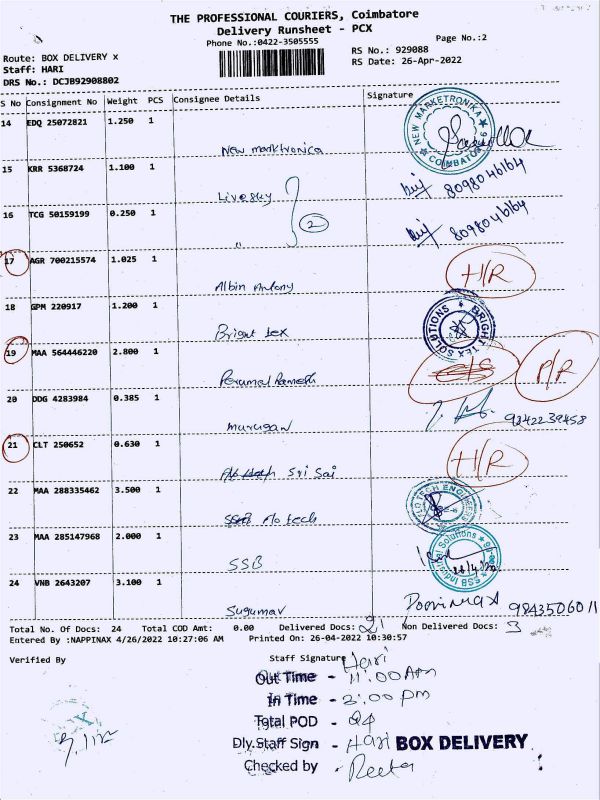 THE PROFESSIONAL COURIERS, Coimbatore
Delivery Runsheet - PCX
Phone No.:0422-3505555
Page No.:2
Route: BOX DELIVERY x
RS No.: 929088
Staff: HARI
RS Date: 26-Apr-2022
DRS No.: DCJB92908802
S No Consignment No Weight PCS Consignee Details Signature
14 EDQ 25072821 1.250 1
New marktronica
NEW MARKETRONIKA COIMBATORE
15 KRR 5368724 1.100 1
Livesky
8098046164
16 TCG 50159199 0.250 1
"
2
8098046164
17 AGR 700215574 1.025 1
Albin Antony
H/R
18 GPM 220917 1.200 1
Bright tex
BRIGHT TEX SOLUTIONS
19 MAA 564446220 2.800 1
Perumal Ramesh
P/R
20 DDG 4283984 0.385 1
Murugan
9842239458
21 CLT 250652 0.630 1
Sri Sai
H/R
22 MAA 288335462 3.500 1
Flo tech
FLO TECH ENGINEERS
23 MAA 285147968 2.000 1
SSB
ESB Industrial Solutions
24 VNB 2643207 3.100 1
Sugumar
Poornima A 9843506011
Total No. Of Docs: 24 Total COD Amt: 0.00 Delivered Docs: 21 Non Delivered Docs: 3
Entered By :NAPPINAX 4/26/2022 10:27:06 AM Printed On: 26-04-2022 10:30:57
Verified By
Staff Signature Hari
Out Time - 11:00 Am
In Time - 2:00 pm
Total POD - 24
Dly.Staff Sign - Hari BOX DELIVERY
Checked by - Reeta